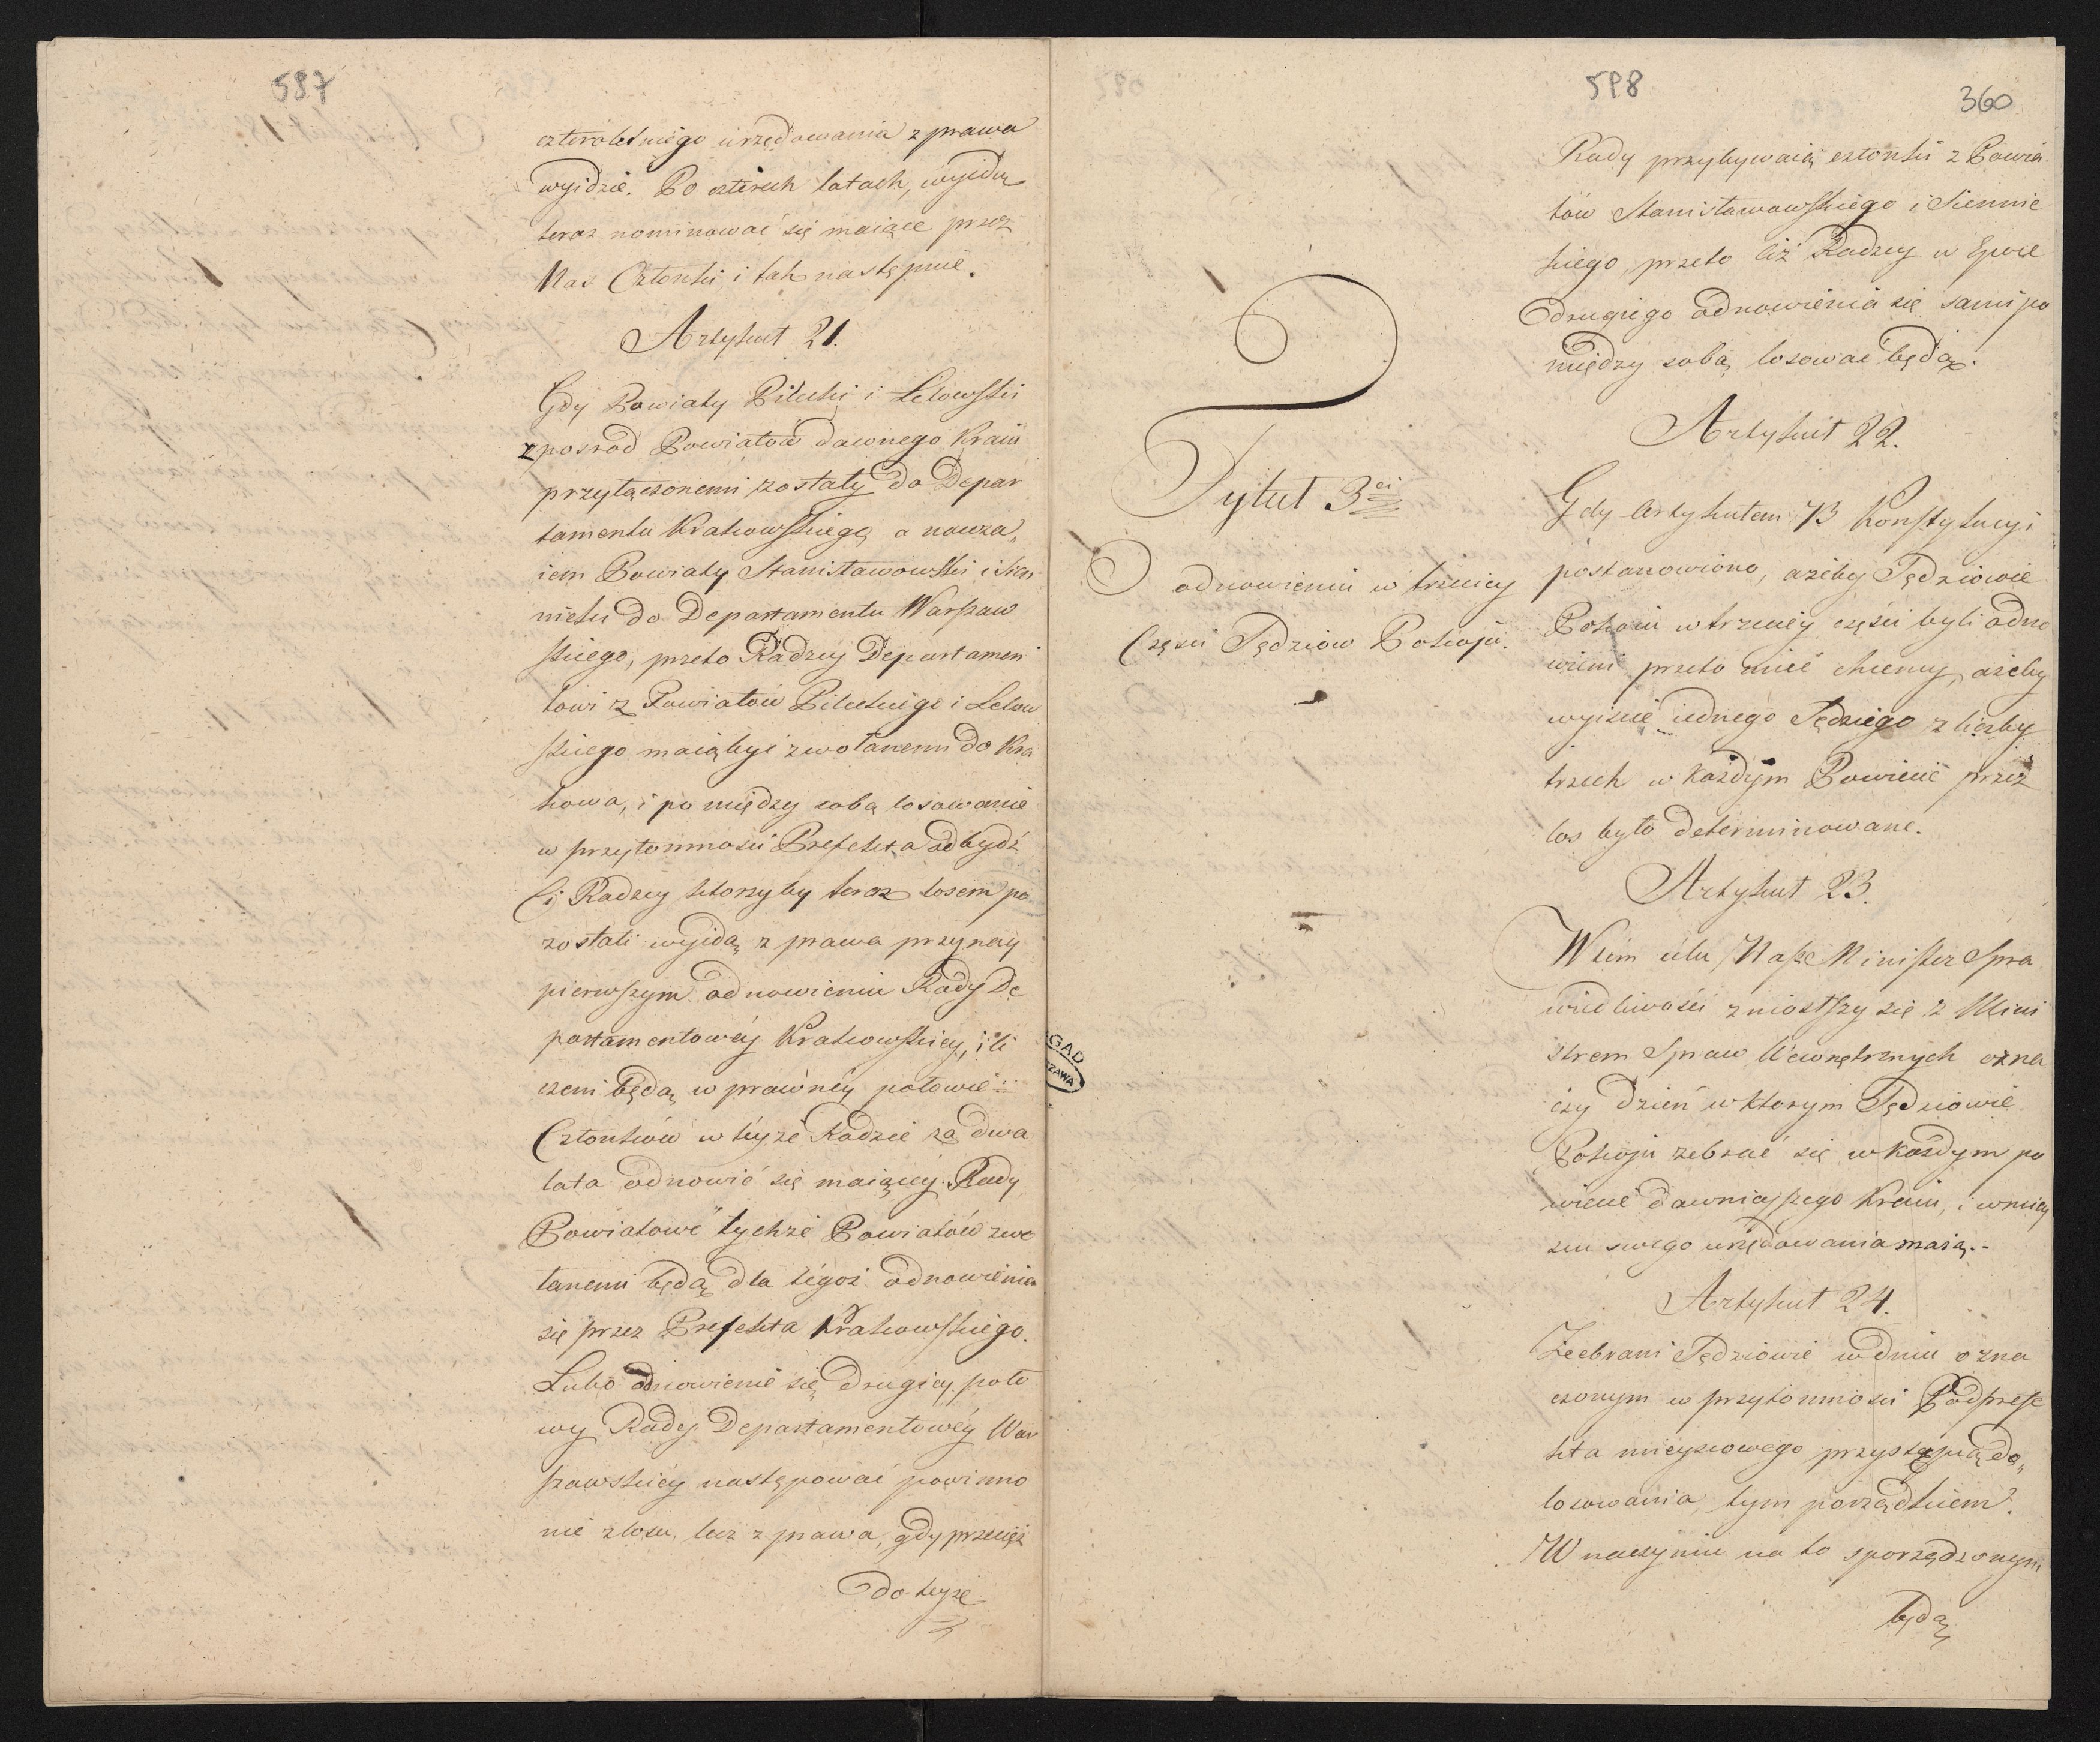 587
czteroletniego urzędowania z prawa
wyidzie. Po czterech latach, wyidą
teraz nominować się maiące przez
Nas Członki, i tak następnie.
Artykuł 21.
Gdy Powiaty Pilecki i Lelowski
z pośrod Powiatow dawnego Kraiu
przyłączonemi zostały do Depar
tamentu Krakowskiego, a nawza„
iem Powiaty Stanisławowski i Sien
nicki do Departamentu Warszaw
skiego, przeto Radzcy Departamen
towi z Powiatow Pileckiego i Lelow
skiego maią być zwołanemi do Kra
kowa, i pomiędzy sobą losowanie
w przytomności Prefekta odbydź
Ci Radzcy ktorzyby teraz losem po
zostali wyidą z prawa przy nay
pierwszym odnowieniu Rady De
partamentowéy Krakowskiey, i li
czeni będą w prawnéy połowie
Członków w téyże Radzie za dwa
lata odnowić się maiącéy. Rady
Powiatowe tychże Powiatów zwo
łanemi będą dla tegoż odnowienia
się przez Prefekta Krakowskiego.
Lubo odnowienie się drugiéy poło
wy Rady Departamentowéy War
szawskiéy następować powinno
nie z losu, lecz z prawa, gdy przecież
do teyże
598
360
Tytuł 3ci
O odnowieniu w trzeciey
Części Sędziow Pokoju.
Rady przybywaią członki z Powia
tow Stanisławowskiego i Siennic
kiego, przeto ciż Radzcy w Epoce
drugiego odnowienia się sami po
między sobą losować będą.
Artykuł 22.
Gdy Artykułem 73 Konstytucyi
postanowiono, ażeby Sędziowie
Pokoiu w trzeciéy części byli odno
wieni przeto mieć chcemy, ażeby
wyiście iednego Sędziego z liczby
trzech w każdym Powiecie przez
los było determinowane.
Artykuł 23.
W tém celu Nasz Minister Spra
wiedliwości zniosłszy się z Mini
strem Spraw Wewnętrznych ozna
czy dzień w ktorym Sędziowie
Pokoju zebrać się w każdym po
wiecie dawniejszego Kraiu, i w miey
scu swego urzędowania maią.
Artykuł 24.
Zeebrani Sędziowie w dniu ozna
czonym w przytomności Podprefe
kta mieyscowego przystąpią do„
losowania, tym porządkiem.
W naczyniu na to sporządzonym
będą